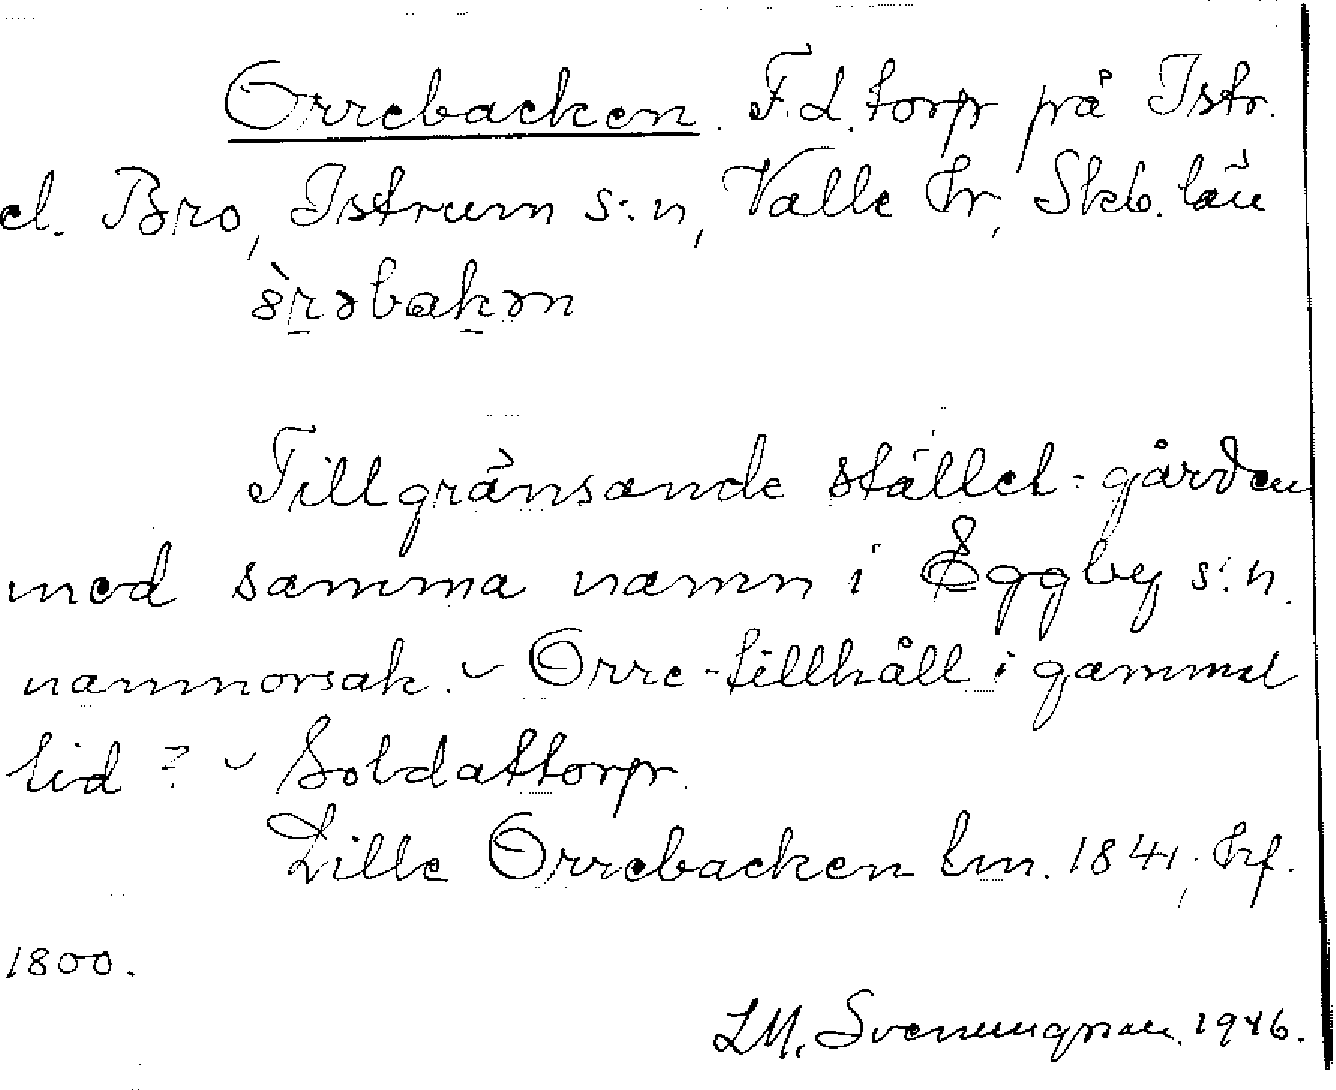 Orrebacken. F.d. torp på Istr.
el. Bro, Istrum s:n, Valle hr, Skb. län
òrəbakən
Tillgränsande stället-gården
med samma namn i Eggby s:n.
namnorsak. – Orre-tillhåll i gammal
tid? – Soldattorp.
Lille Orrebacken lm. 1841, hf.
1800.
LM. Svenungsson 1946.